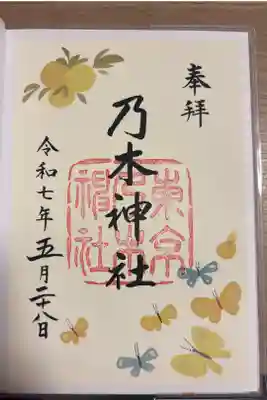 奉拝
乃木神社
東京
乃木
神社
令和七年五月二十八日